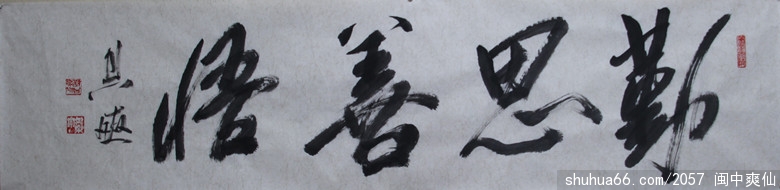 勤思善悟
shuhua66.com/2057 闽中爽仙